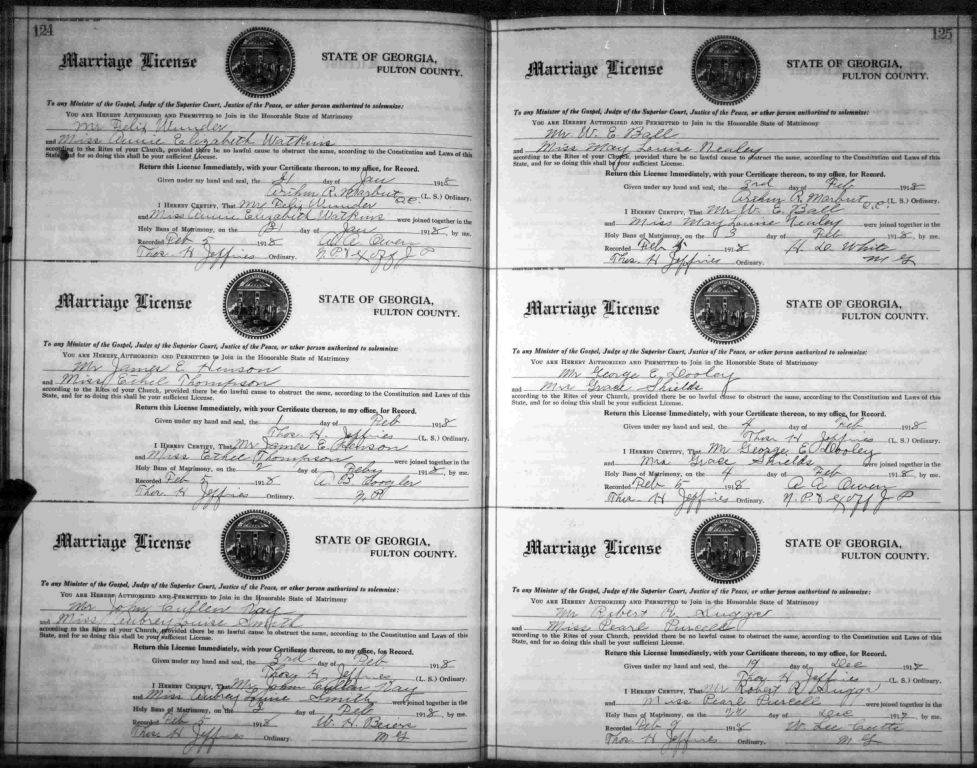 124
Marriage License
STATE OF GEORGIA,
FULTON COUNTY.
To any Minister of the Gospel, Judge of the Superior Court, Justice of the Peace, or other person authorized to solemnize:
YOU ARE HEREBY AUTHORIZED AND PERMITTED to Join in the Honorable State of Matrimony
Mr Felix Wunder
and Miss Annie Elizabeth Watkins
according to the Rites of your Church, provided there be no lawful cause to obstruct the same, according to the Constitution and Laws of this
State, and for so doing this shall be your sufficient License.
Return this License Immediately, with your Certificate thereon, to my office, for Record.
Given under my hand and seal, the 31 day of Jan 1918
Arthur R. Marbut D.C. (L. S.) Ordinary.
I HEREBY CERTIFY, That Mr Felix Wunder
and Miss Annie Elizabeth Watkins were joined together in the
Holy Bans of Matrimony, on the 31 day of Jan 1918, by me.
Recorded Feb 5 1918 A. A. Owen
Thos. H. Jeffries Ordinary. N. P. & Ex Off J P
Marriage License
STATE OF GEORGIA,
FULTON COUNTY.
To any Minister of the Gospel, Judge of the Superior Court, Justice of the Peace, or other person authorized to solemnize:
YOU ARE HEREBY AUTHORIZED AND PERMITTED to Join in the Honorable State of Matrimony
Mr James E Henson
and Miss Ethel Thompson
according to the Rites of your Church, provided there be no lawful cause to obstruct the same, according to the Constitution and Laws of this
State, and for so doing this shall be your sufficient License.
Return this License Immediately, with your Certificate thereon, to my office, for Record.
Given under my hand and seal, the 1 day of Feb 1918
Thos. H. Jeffries (L. S.) Ordinary.
I HEREBY CERTIFY, That Mr James E Henson
and Miss Ethel Thompson were joined together in the
Holy Bans of Matrimony, on the 2 day of Feby 1918, by me.
Recorded Feb 5 1918 A B Coogler
Thos. H Jeffries Ordinary. N. P.
Marriage License
STATE OF GEORGIA,
FULTON COUNTY.
To any Minister of the Gospel, Judge of the Superior Court, Justice of the Peace, or other person authorized to solemnize:
YOU ARE HEREBY AUTHORIZED AND PERMITTED to Join in the Honorable State of Matrimony
Mr John Cullen Kay
and Miss Aubrey Louise Smith
according to the Rites of your Church, provided there be no lawful cause to obstruct the same, according to the Constitution and Laws of this
State, and for so doing this shall be your sufficient License.
Return this License Immediately, with your Certificate thereon, to my office, for Record.
Given under my hand and seal, the 2nd day of Feb 1918
Thos H Jeffries (L. S.) Ordinary.
I HEREBY CERTIFY, That Mr John Cullen Kay
and Miss Aubrey Louise Smith were joined together in the
Holy Bans of Matrimony, on the 3 day of Feb 1918, by me.
Recorded Feb 5 1918 W. H.
Thos. H Jeffries Ordinary. M G
125
Marriage License
STATE OF GEORGIA,
FULTON COUNTY.
To any Minister of the Gospel, Judge of the Superior Court, Justice of the Peace, or other person authorized to solemnize:
YOU ARE HEREBY AUTHORIZED AND PERMITTED to Join in the Honorable State of Matrimony
Mr W. E Ball
and Miss May Louise Nealey
according to the Rites of your Church, provided there be no lawful cause to obstruct the same, according to the Constitution and Laws of this
State, and for so doing this shall be your sufficient License.
Return this License Immediately, with your Certificate thereon, to my office, for Record.
Given under my hand and seal, the 2nd day of Feb 1918
Arthur R. Marbut D.C. (L. S.) Ordinary.
I HEREBY CERTIFY, That Mr W. E. Ball
and Miss May Louise Nealey were joined together in the
Holy Bans of Matrimony, on the 3 day of Feb 1918, by me.
Recorded Feb 1918 H. D. White
Thos. H Jeffries Ordinary. M G
Marriage License
STATE OF GEORGIA,
FULTON COUNTY.
To any Minister of the Gospel, Judge of the Superior Court, Justice of the Peace, or other person authorized to solemnize:
YOU ARE HEREBY AUTHORIZED AND PERMITTED to Join in the Honorable State of Matrimony
Mr George E. Dooley
and Mrs Grace Shields
according to the Rites of your Church, provided there be no lawful cause to obstruct the same, according to the Constitution and Laws of this
State, and for so doing this shall be your sufficient License.
Return this License Immediately, with your Certificate thereon, to my office, for Record.
Given under my hand and seal, the 4 day of Feb 1918
Thos. H Jeffries (L. S.) Ordinary.
I HEREBY CERTIFY, That Mr George E Dooley
and Mrs Grace Shields were joined together in the
Holy Bans of Matrimony, on the 4 day of Feb 1918, by me.
Recorded Feb 5 1918 A A Owen
Thos. H Jeffries Ordinary. N. P. & Ex Off J P
Marriage License
STATE OF GEORGIA,
FULTON COUNTY.
To any Minister of the Gospel, Judge of the Superior Court, Justice of the Peace, or other person authorized to solemnize:
YOU ARE HEREBY AUTHORIZED AND PERMITTED to Join in the Honorable State of Matrimony
Mr Robert R.
and Miss Pearl Purcell
according to the Rites of your Church, provided there be no lawful cause to obstruct the same, according to the Constitution and Laws of this
State, and for so doing this shall be your sufficient License.
Return this License Immediately, with your Certificate thereon, to my office, for Record.
Given under my hand and seal, the 19 day of Dec 1917
Thos H Jeffries (L. S.) Ordinary.
I HEREBY CERTIFY, That Mr Robert R
and Miss Pearl Purcell were joined together in the
Holy Bans of Matrimony, on the 22 day of Dec 1917, by me.
Recorded Feb 1918 W. Lee Cutts
Thos. H Jeffries Ordinary. M G